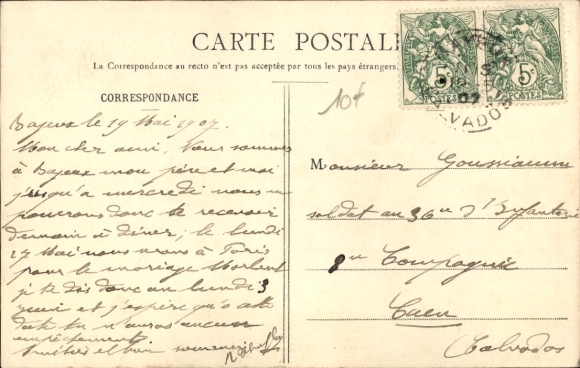 CARTE POSTALE
La Correspondance au recto n'est pas acceptée par tous les pays étrangers
CORRESPONDANCE
Bayeux le 19 Mai 1907.
Mon cher ami, Nous sommes
à Bayeux mon père et moi
jusqu'à mercredi nous ne
pouvons donc te recevoir
demain à dîner; le lundi
27 Mai nous irons à Paris
pour le mariage
je te dis donc au lundi 3
juin et j'espère qu'à cette
date tu n'auras aucun
empêchement.
5c 5c
POSTES POSTES
CALVADOS
10f
Monsieur
soldat au 36e d'Infanterie
Compagnie
Caen
Calvados